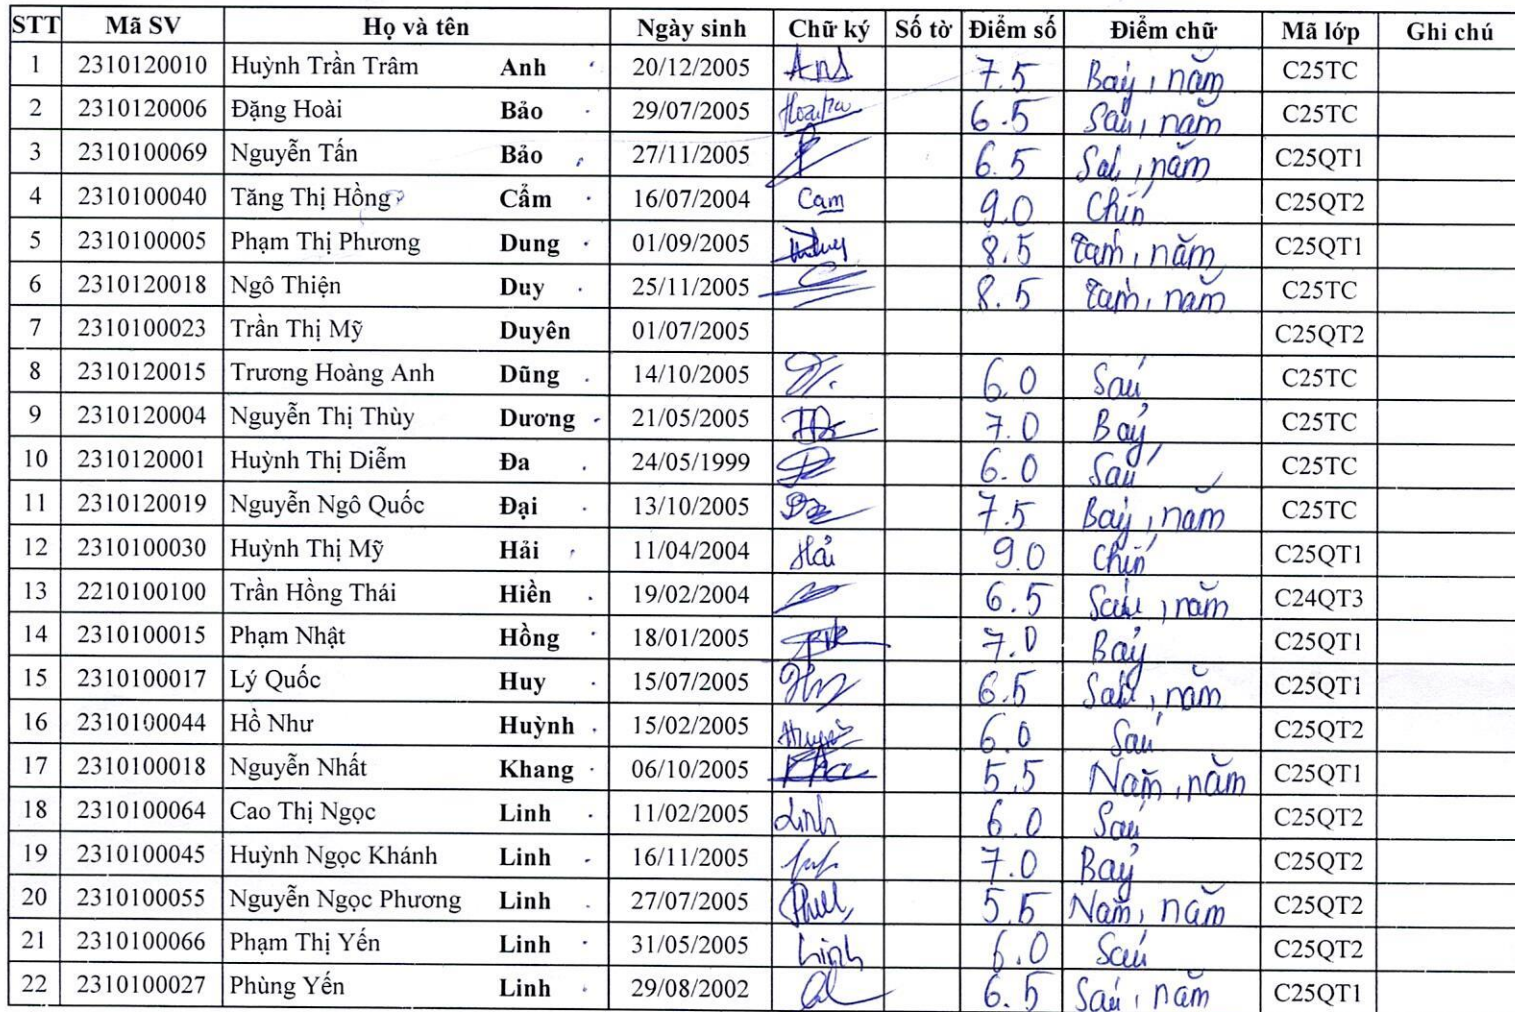 STT Mã SV Họ và tên Ngày sinh Chữ ký Số tờ Điểm số Điểm chữ Mã lớp Ghi chú
1 2310120010 Huỳnh Trần Trâm Anh 20/12/2005 Anh 7.5 Bảy, năm C25TC
2 2310120006 Đặng Hoài Bảo 29/07/2005 6.5 Sáu, năm C25TC
3 2310100069 Nguyễn Tấn Bảo 27/11/2005 6.5 Sáu, năm C25QT1
4 2310100040 Tăng Thị Hồng Cẩm 16/07/2004 Cam 9.0 Chín C25QT2
5 2310100005 Phạm Thị Phương Dung 01/09/2005 8.5 Tám, năm C25QT1
6 2310120018 Ngô Thiện Duy 25/11/2005 8.5 Tám, năm C25TC
7 2310100023 Trần Thị Mỹ Duyên 01/07/2005 C25QT2
8 2310120015 Trương Hoàng Anh Dũng 14/10/2005 6.0 Sáu C25TC
9 2310120004 Nguyễn Thị Thùy Dương 21/05/2005 7.0 Bảy C25TC
10 2310120001 Huỳnh Thị Diễm Đa 24/05/1999 6.0 Sáu C25TC
11 2310120019 Nguyễn Ngô Quốc Đại 13/10/2005 7.5 Bảy, năm C25TC
12 2310100030 Huỳnh Thị Mỹ Hải 11/04/2004 Hải 9.0 Chín C25QT1
13 2210100100 Trần Hồng Thái Hiền 19/02/2004 6.5 Sáu, năm C24QT3
14 2310100015 Phạm Nhật Hồng 18/01/2005 7.0 Bảy C25QT1
15 2310100017 Lý Quốc Huy 15/07/2005 Huy 6.5 Sáu, năm C25QT1
16 2310100044 Hồ Như Huỳnh 15/02/2005 6.0 Sáu C25QT2
17 2310100018 Nguyễn Nhất Khang 06/10/2005 5.5 Năm, năm C25QT1
18 2310100064 Cao Thị Ngọc Linh 11/02/2005 Linh 6.0 Sáu C25QT2
19 2310100045 Huỳnh Ngọc Khánh Linh 16/11/2005 7.0 Bảy C25QT2
20 2310100055 Nguyễn Ngọc Phương Linh 27/07/2005 5.5 Năm, năm C25QT2
21 2310100066 Phạm Thị Yến Linh 31/05/2005 Linh 6.0 Sáu C25QT2
22 2310100027 Phùng Yến Linh 29/08/2002 6.5 Sáu, năm C25QT1